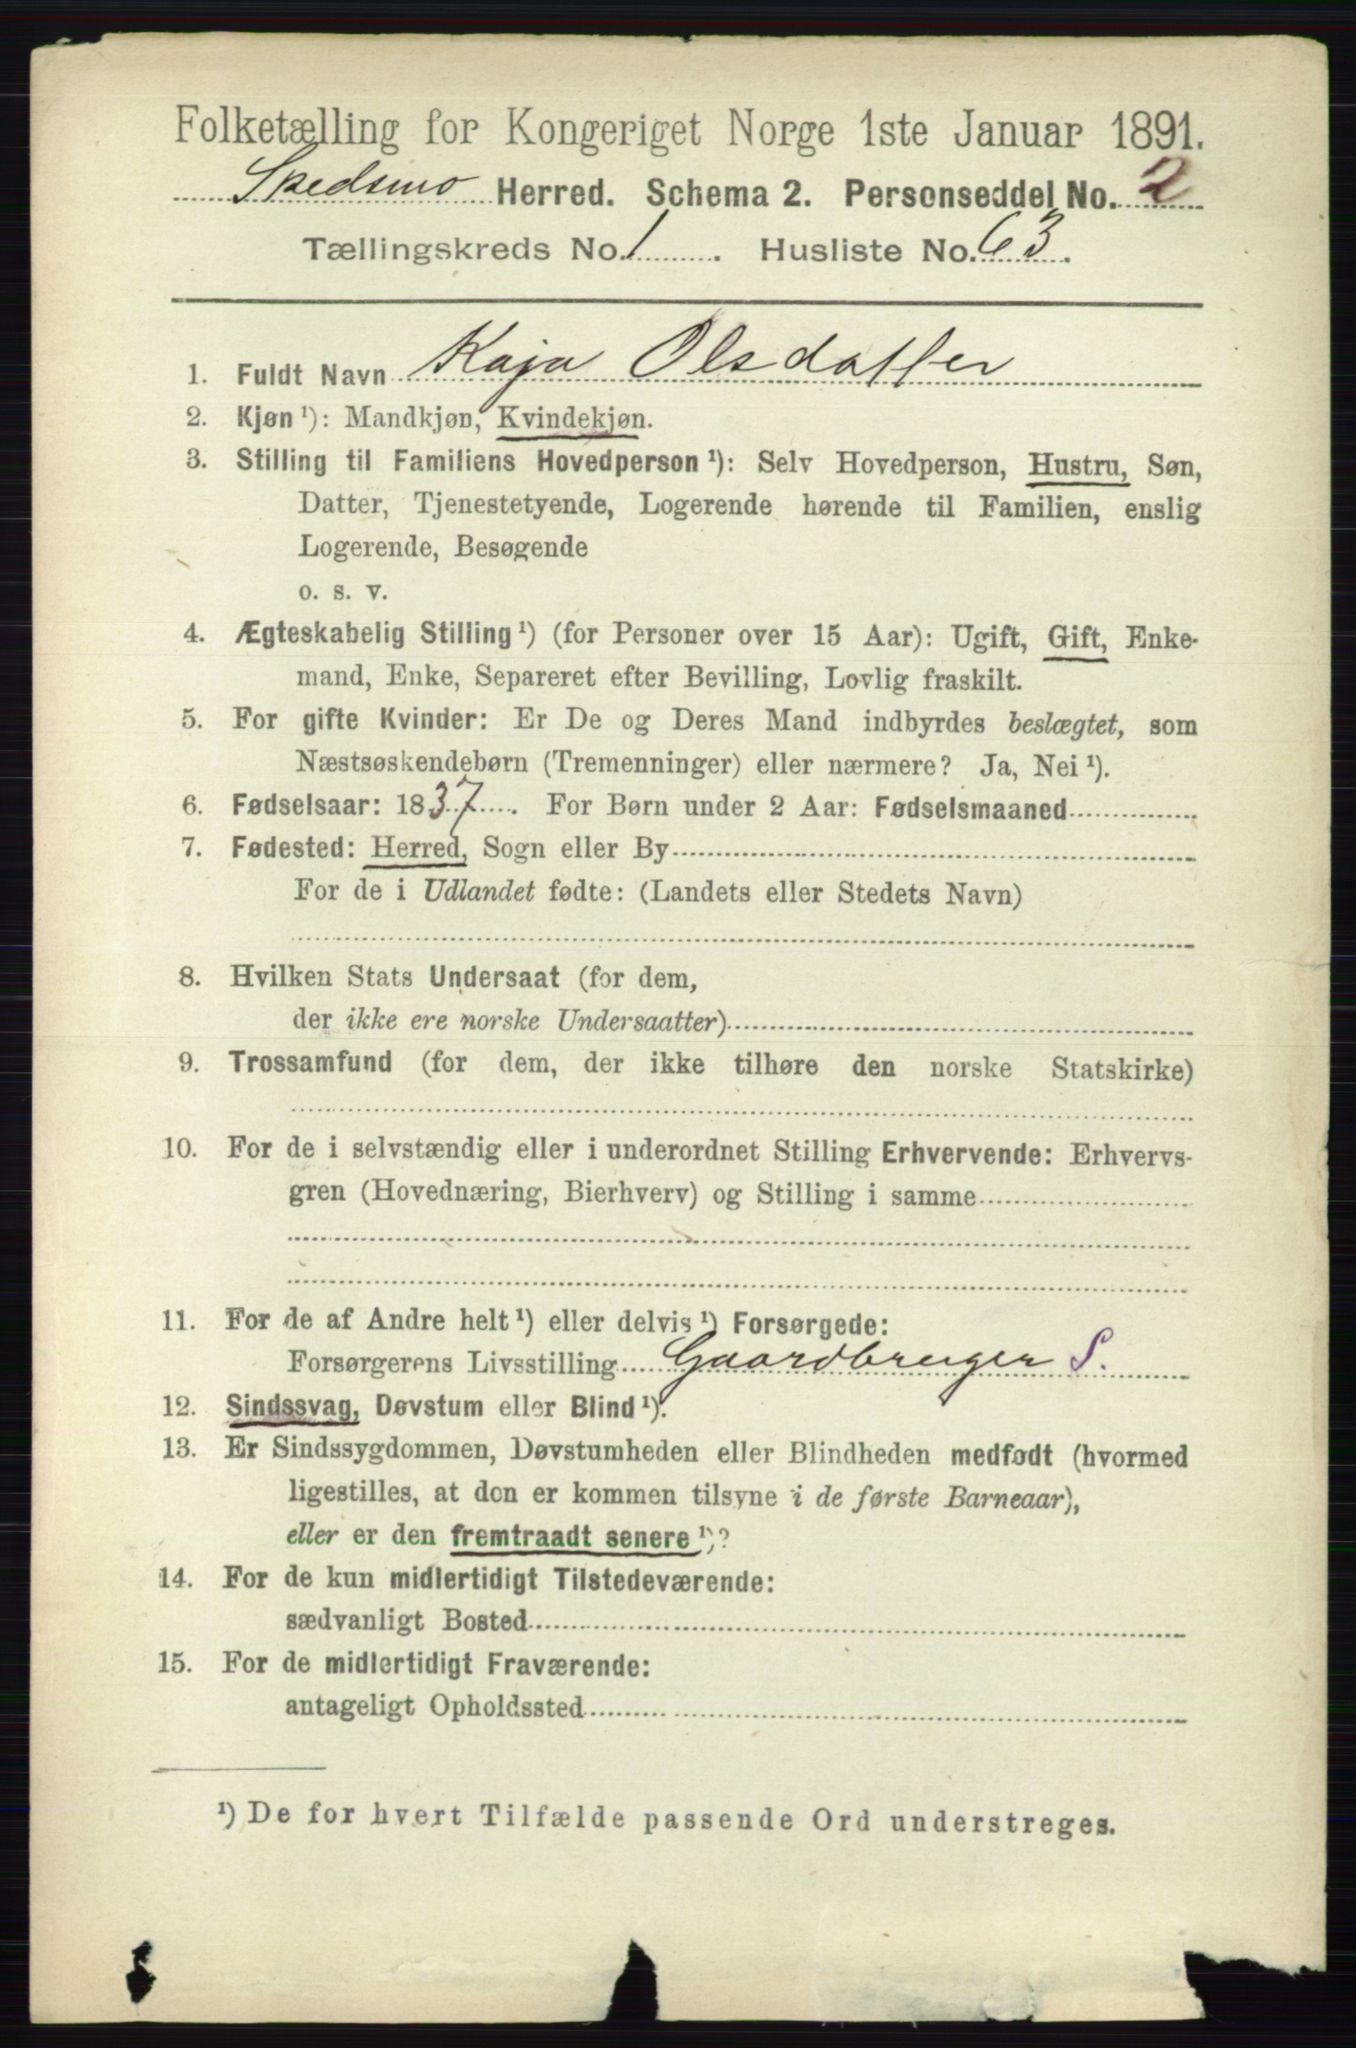 Folketælling for Kongeriget Norge 1ste Januar 1891.
Skedsmo Herred. Schema 2. Personseddel No. 2
Tællingskreds No. 1. Husliste No. 63.
1. Fuldt Navn Kaja Olsdatter
2. Kjøn ¹): Mandkjøn, Kvindekjøn.
3. Stilling til Familiens Hovedperson ¹): Selv Hovedperson, Hustru, Søn,
Datter, Tjenestetyende, Logerende hørende til Familien, enslig
Logerende, Besøgende
o. s. v.
4. Ægteskabelig Stilling ¹) (for Personer over 15 Aar): Ugift, Gift, Enke-
mand, Enke, Separeret efter Bevilling, Lovlig fraskilt.
5. For gifte Kvinder: Er De og Deres Mand indbyrdes beslægtet, som
Næstsøskendebørn (Tremenninger) eller nærmere? Ja, Nei ¹).
6. Fødselsaar: 1837. For Børn under 2 Aar: Fødselsmaaned
7. Fødested: Herred, Sogn eller By
For de i Udlandet fødte: (Landets eller Stedets Navn)
8. Hvilken Stats Undersaat (for dem,
der ikke ere norske Undersaatter)
9. Trossamfund (for dem, der ikke tilhøre den norske Statskirke)
10. For de i selvstændig eller i underordnet Stilling Erhvervende: Erhvervs-
gren (Hovednæring, Bierhverv) og Stilling i samme
11. For de af Andre helt ¹) eller delvis ¹) Forsørgede:
Forsørgerens Livsstilling Gaardbruger S.
12. Sindssvag, Døvstum eller Blind ¹).
13. Er Sindssygdommen, Døvstumheden eller Blindheden medfødt (hvormed
ligestilles, at den er kommen tilsyne i de første Barneaar),
eller er den fremtraadt senere ¹)?
14. For de kun midlertidigt Tilstedeværende:
sædvanligt Bosted
15. For de midlertidigt Fraværende:
antageligt Opholdssted
¹) De for hvert Tilfælde passende Ord understreges.